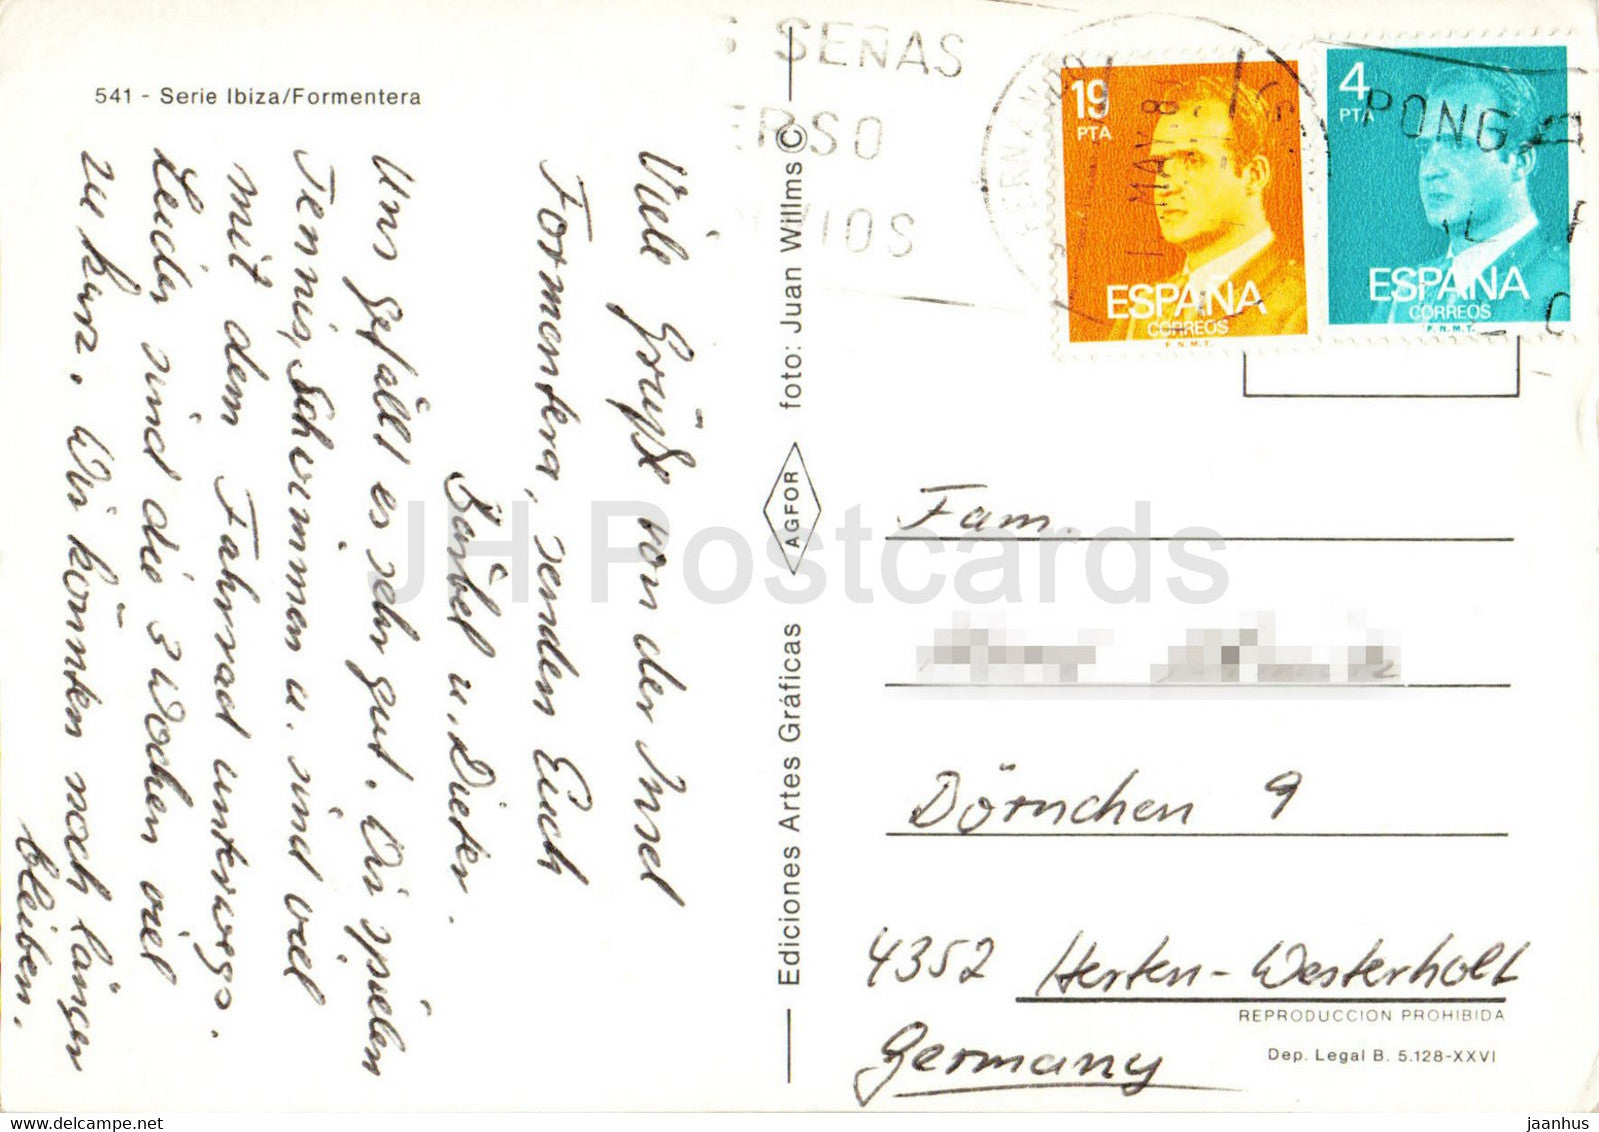 541 - Serie Ibiza/Formentera
Viele Grüße von der Insel
Formentera, senden Euch
Bärbel u. Dieter.
Uns gefällt es sehr gut. Wir spielen
Tennis, Schwimmen u. sind viel
mit dem Fahrrad unterwegs.
Leider sind die 3 Wochen viel
zu kurz. Wir könnten noch länger
bleiben.
Ediciones Artes Gráficas AGFOR foto: Juan Willms ©
SEÑAS
PONGA
19
PTA
ESPAÑA
CORREOS
F.N.M.T.
4
PTA
ESPAÑA
CORREOS
F.N.M.T.
Fam.
Dörnchen 9
4352 Herten-Westerholt
Germany
REPRODUCCION PROHIBIDA
Dep. Legal B. 5.128-XXVI
JH Postcards
www.delcampe.net
jaanhus